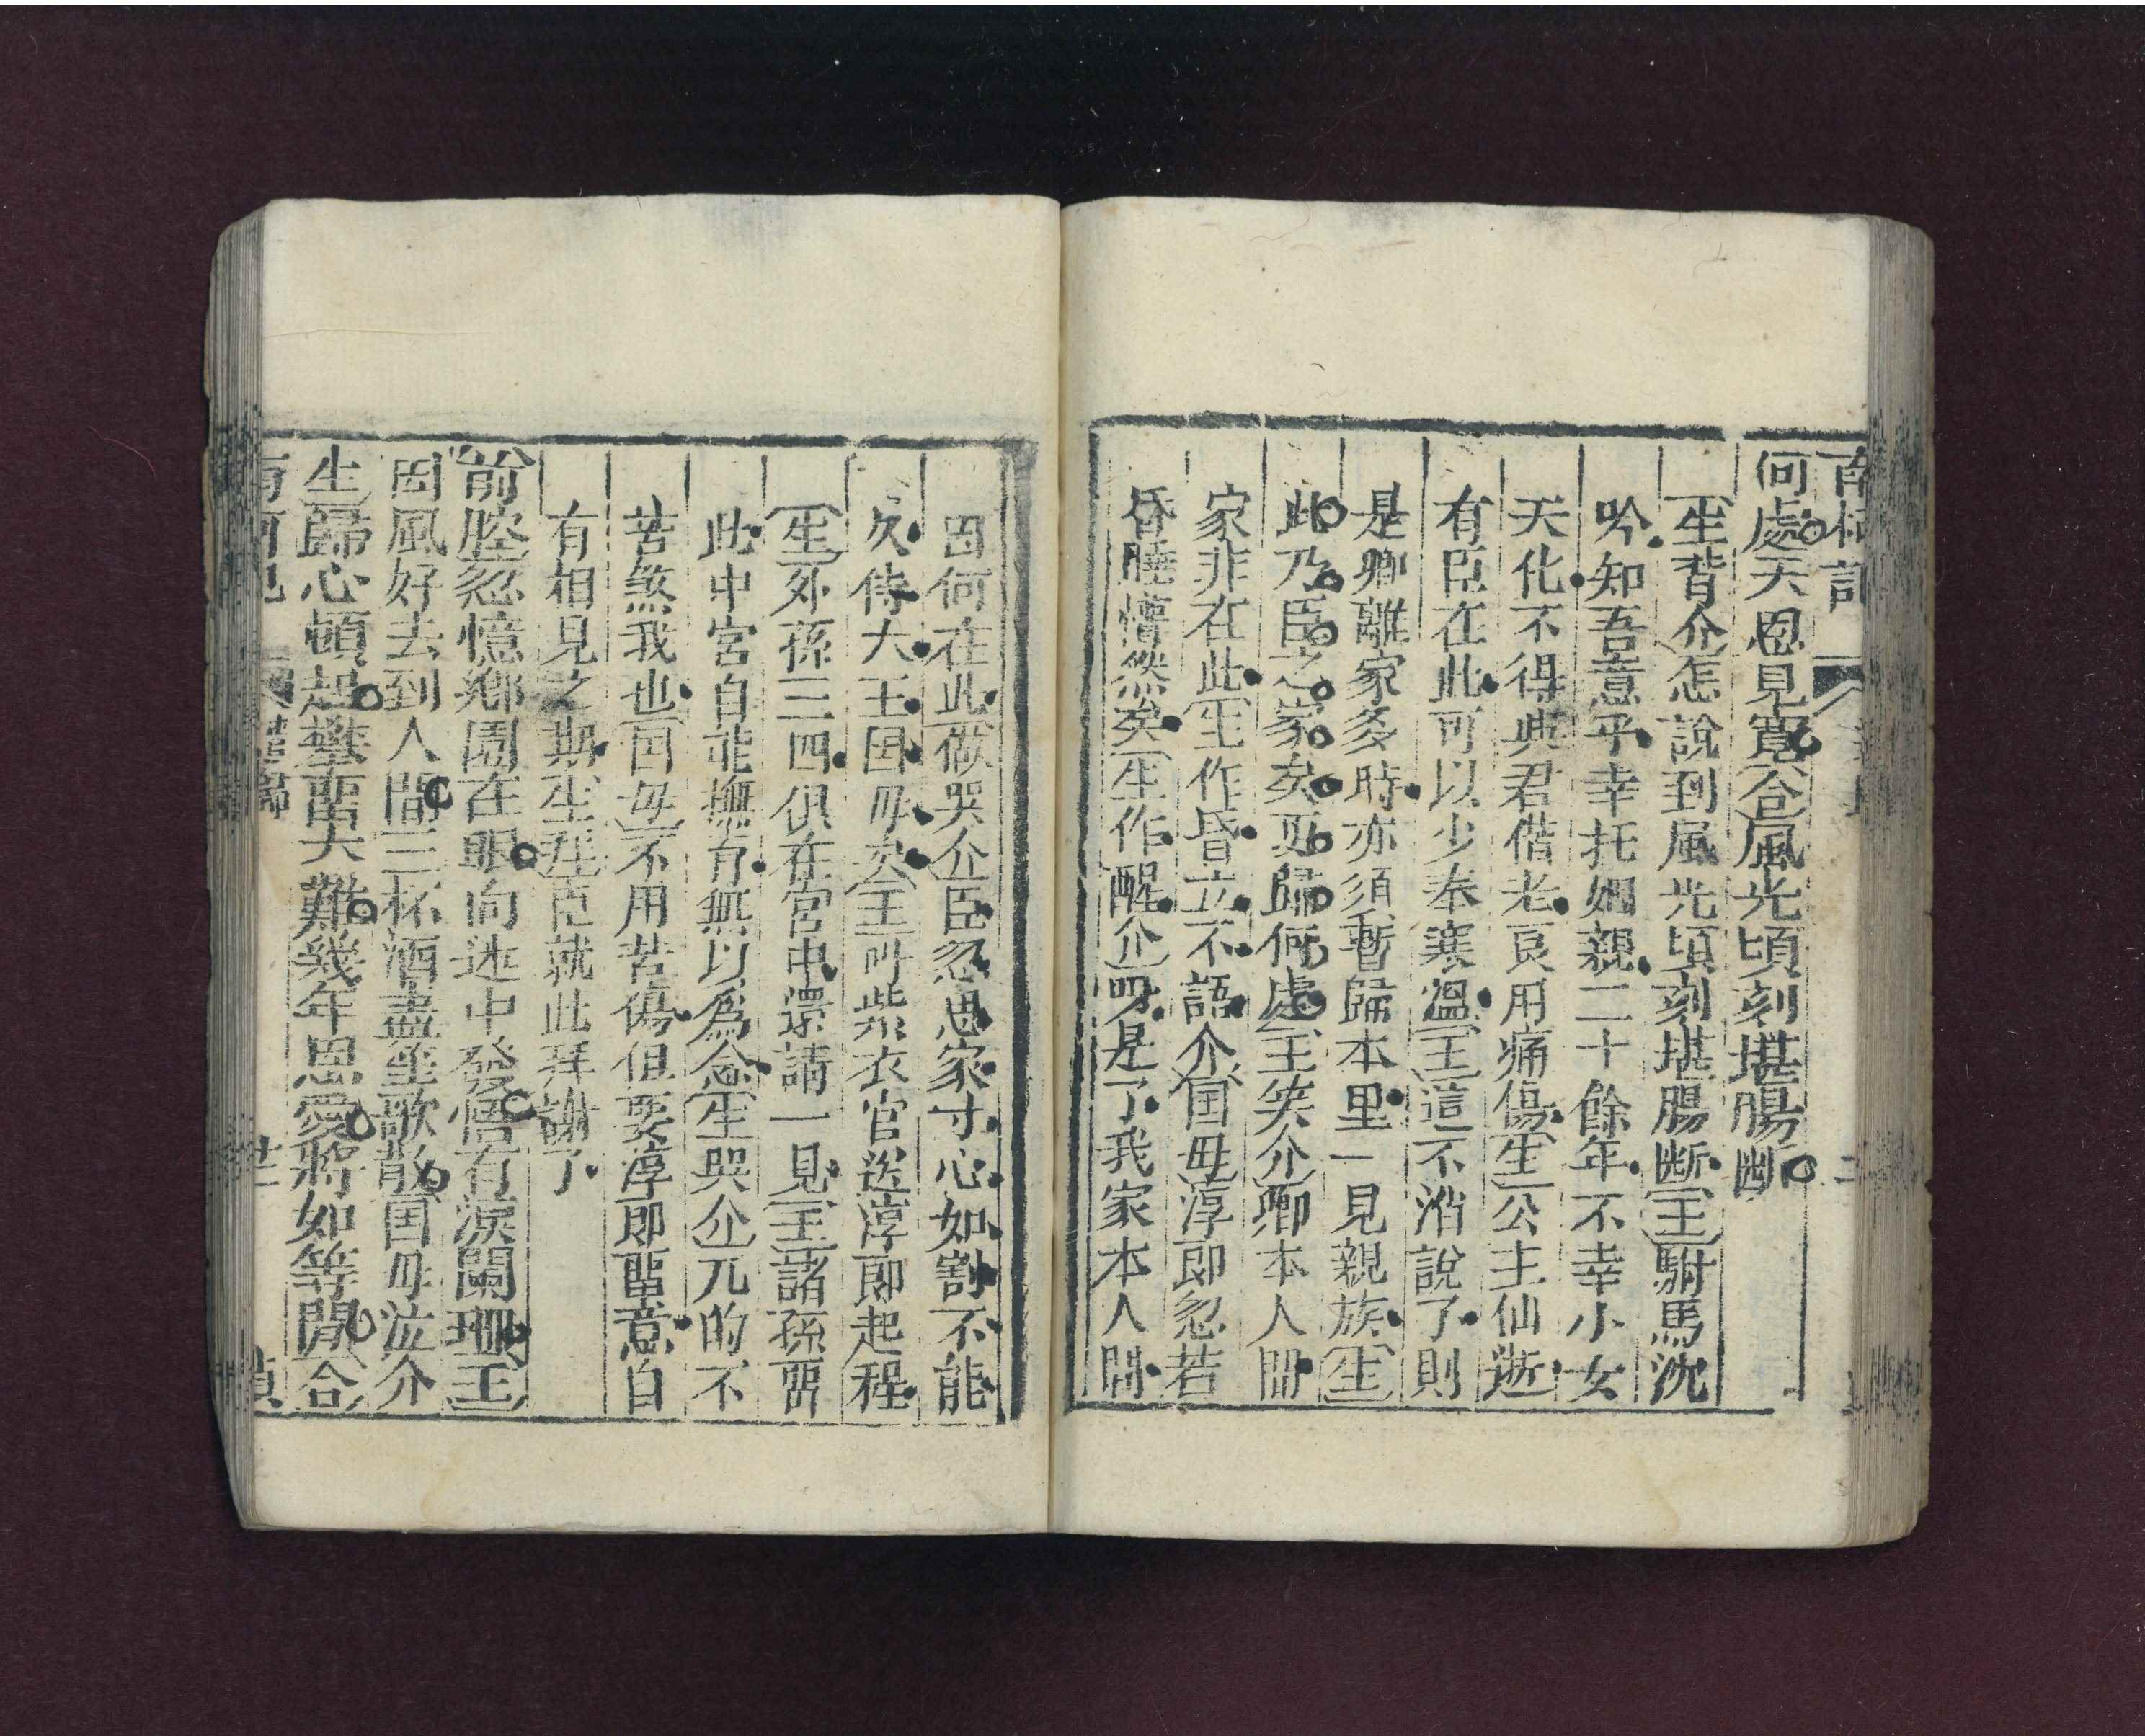 南柯記
何處天恩見寬合風光頃刻堪腸斷
生背介怎說到風光頃刻堪腸斷王駙馬沈
吟知吾意乎幸托姻親二十餘年不幸小女
夭化不得與君偕老良用痛傷生公主仙逝
有臣在此可以少奉寒溫王這不消說了則
是卿離家多時亦須暫歸本里一見親族生
此乃臣之家矣更歸何處王笑介卿本人間
家非在此生作昏立不語介国母淳郎忽若
昏睡懵然矣生作醒介呀是了我家本人間
因何在此做哭介臣忽思家寸心如割不能
久侍大王国母矣王叫紫衣官送淳郎起程
生外孫三四俱在宮中還請一見王諸孫畱
此中宮自能撫育無以爲念生哭介兀的不
苦煞我也国母不用苦傷但要淳郎畱意自
有相見之期生拜臣就此拜謝了
前腔忽憶鄉園在眼向迷中發悟有淚闌珊王
因風好去到人間三杯酒盡笙歌散国母泣介
生歸心頓起攀畱大難幾年恩愛將如等閒合